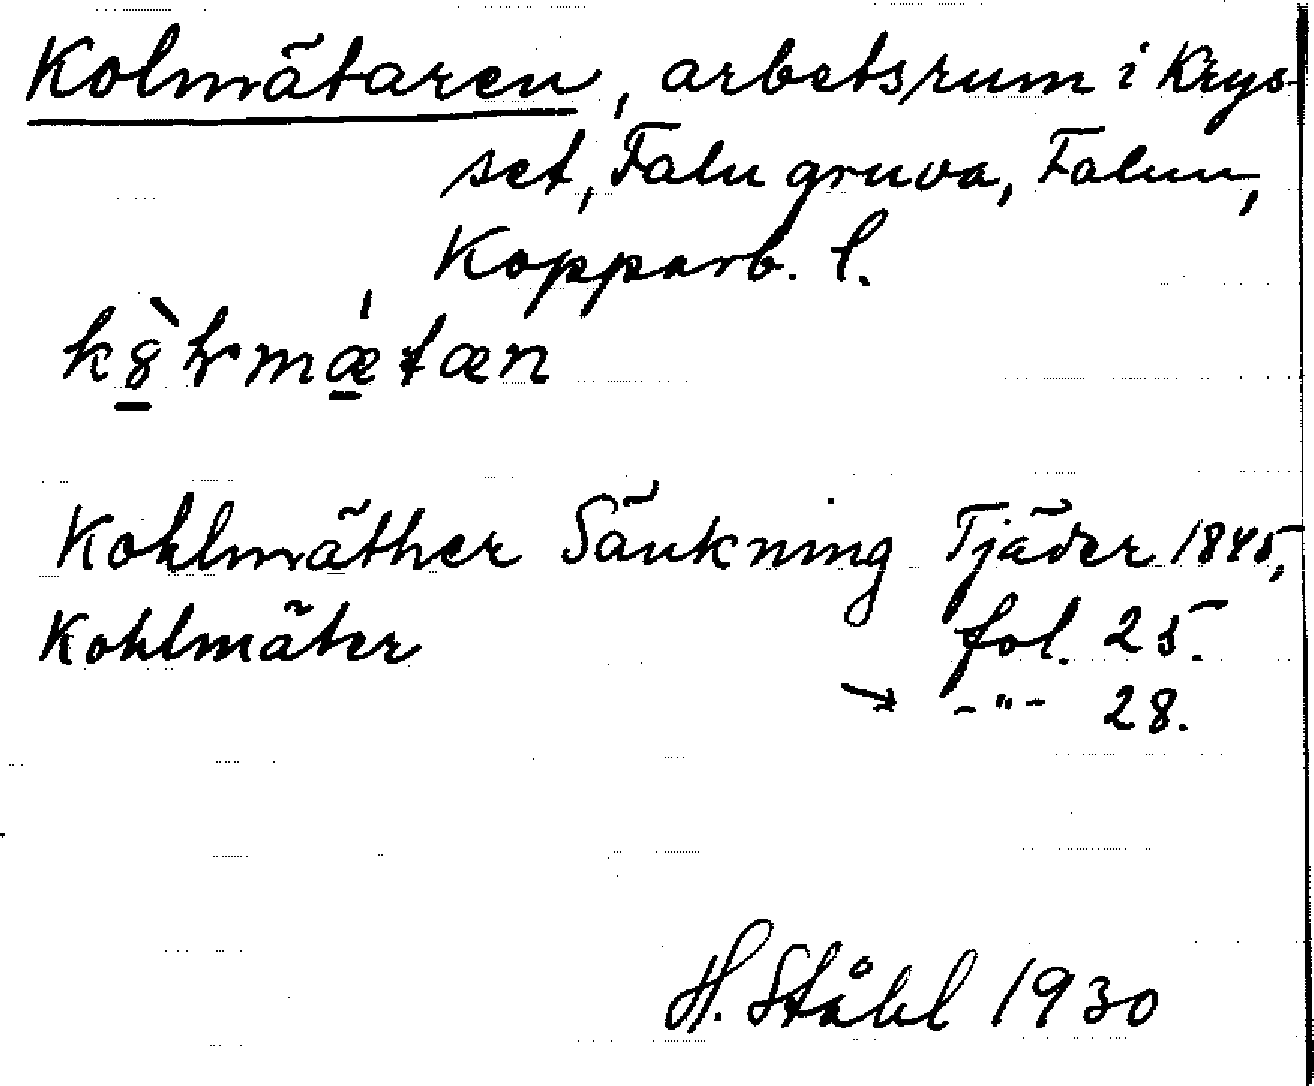 Kolmätaren, arbetsrum i Krys-
set, Falu gruva, Falun,
Kopparb. l.
Kohlmäther Sänkning Tjäder 1845,
Kohlmäter fol. 25.
→ -"- 28.
H. Ståhl 1930